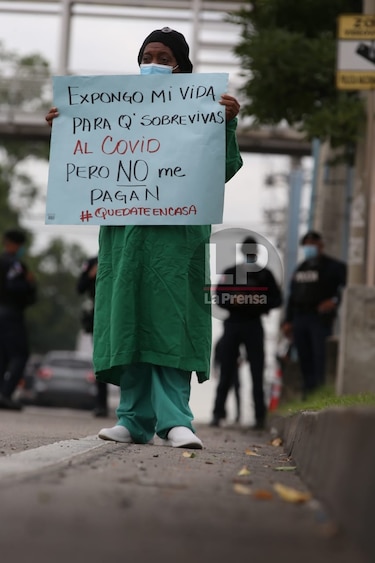 EXPONGO MI VIDA
PARA Q' SOBREVIVAS
AL COVID
PERO NO me
PAGAN
#QUEDATEENCASA
LP
La Prensa